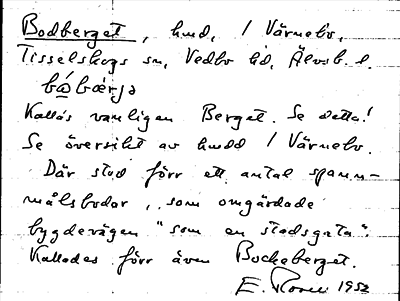 Bodberget, hmd, / Värnebo,
Tisselskogs sn, Vedbo hd, Älvsb. l.
bá̱bœrjə
Kallas vanligen Berget. Se detta!
Se översikt av hmdd / Värnebo.
Där stod förr ett antal spann-
målsbodar, "som omgärdade
bygdevägen "som en stadsgata".
Kallades förr även Bockeberget.
E. Rosen 1953